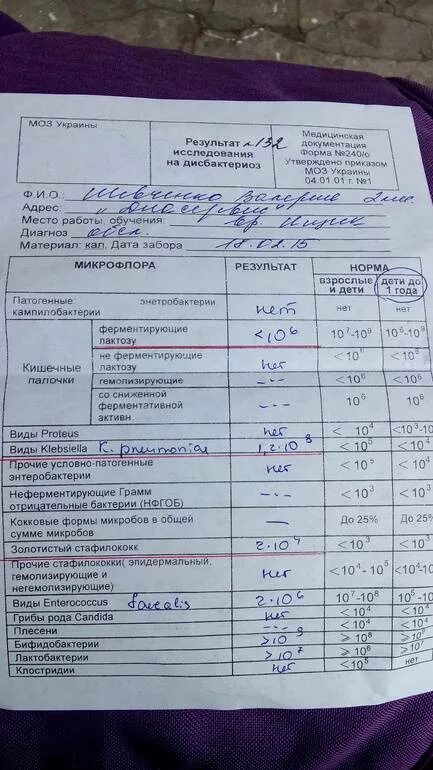 МОЗ Украины
Результат №132
исследования
на дисбактериоз
Медицинская
документация
Форма №240/о
Утверждено приказом
МОЗ Украины
04.01.01 г. №1
Ф.И.О.: Шевченко Валерия 2 мес.
Адрес:
Место работы, обучения:
Диагноз обсл.
Материал: кал. Дата забора 18.02.15
МИКРОФЛОРА РЕЗУЛЬТАТ НОРМА
взрослые и дети дети до 1 года
Патогенные: энетробактерии кампилобактерии нет нет нет
Кишечные палочки
ферментирующие лактозу <10⁶ 10⁷-10⁹ 10⁶-10⁹
не ферментирующие лактозу нет <10⁶ <10⁶
гемолизирующие --- <10⁶ <10⁶
со сниженной ферментативной активн. --- 10⁶ 10⁶
Виды Proteus нет < 10⁴ <10³-10
Виды Klebsiella K. pneumoniae 1,2·10⁸ <10⁵ < 10⁴
Прочие условно-патогенные энтеробактерии нет <10⁵ < 10⁴
Неферментирующие Грамм отрицательные бактерии (НФГОБ) --- <10³ <10³
Кокковые формы микробов в общей сумме микробов — До 25% До 25%
Золотистый стафилококк 2·10⁴ <10³ <10³
Прочие стафилококки( эпидермальный, гемолизирующие и негемолизирующие) нет <10⁴ - 10⁵ <10⁴-10
Виды Enterococcus faecalis 2·10⁶ 10⁷-10⁸ 10⁵-10
Грибы рода Candida нет <10⁴ <10⁴
Плесени --- <10⁴ <10⁴
Бифидобактерии >10⁹ ⩾ 10⁸ ⩾ 10⁹
Лактобактерии >10⁷ ⩾ 10⁶ ⩾10⁷
Клостридии нет <10⁵ нет